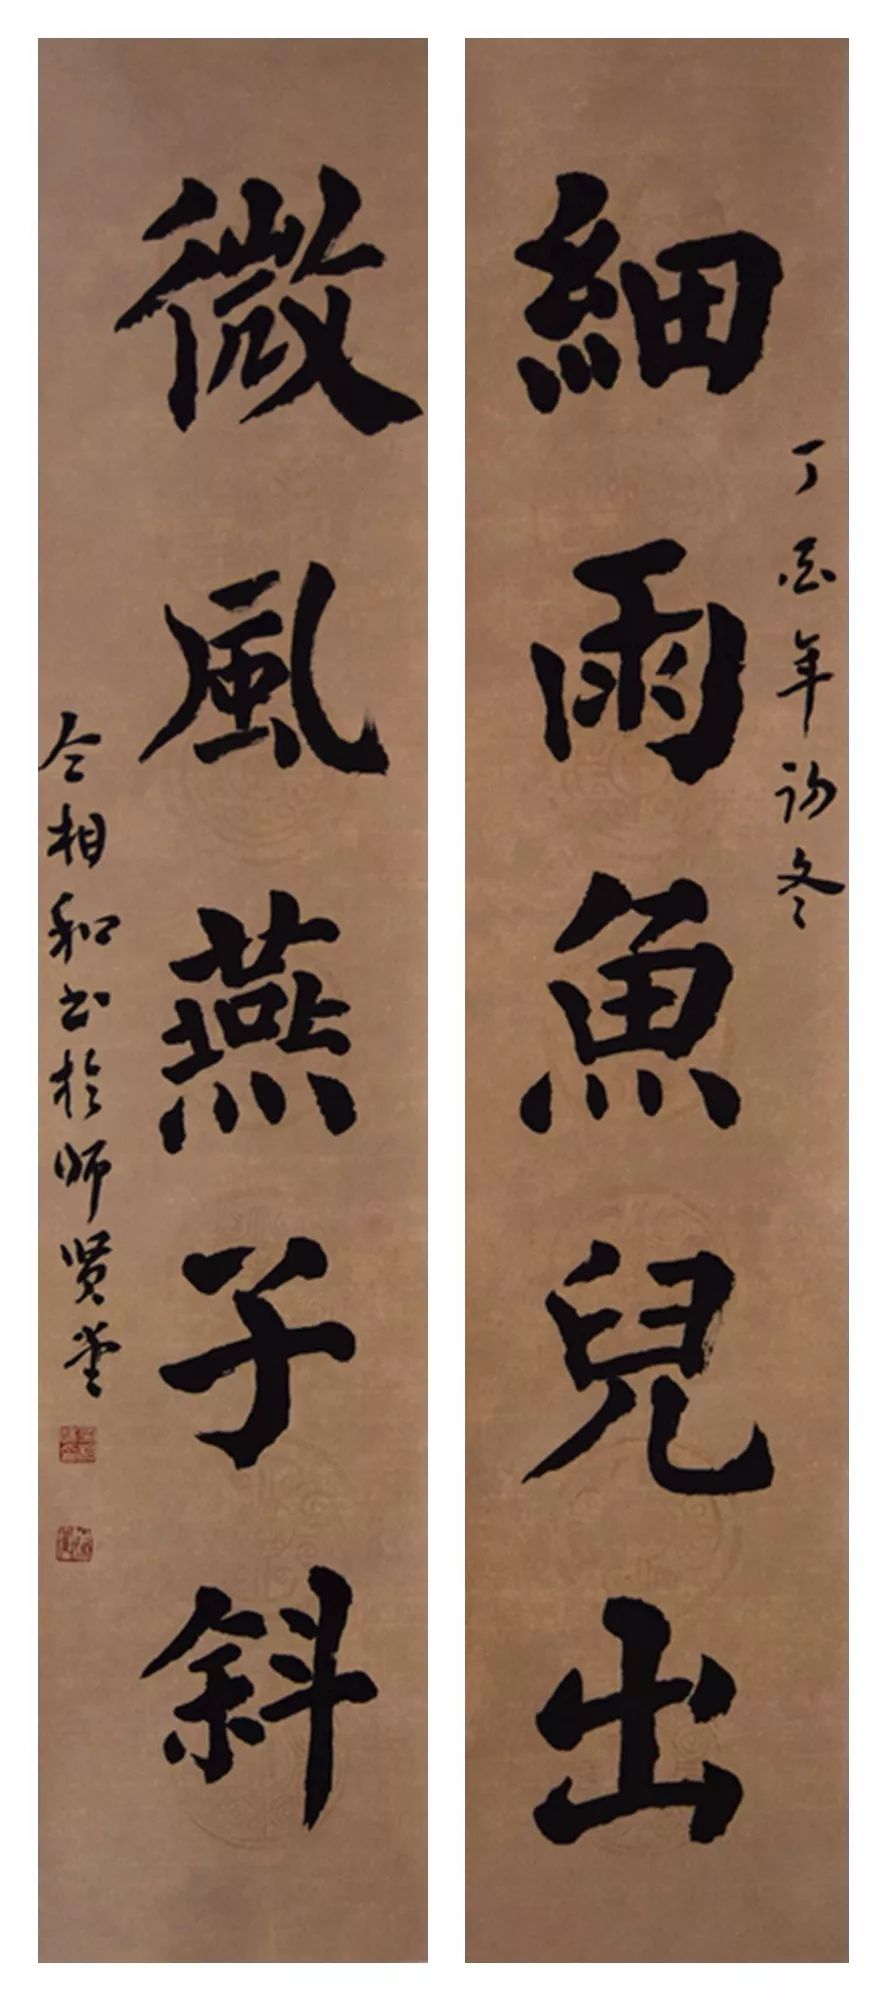 細雨魚兒出
丁酉年初冬
微風燕子斜
仝相和书於师贤堂